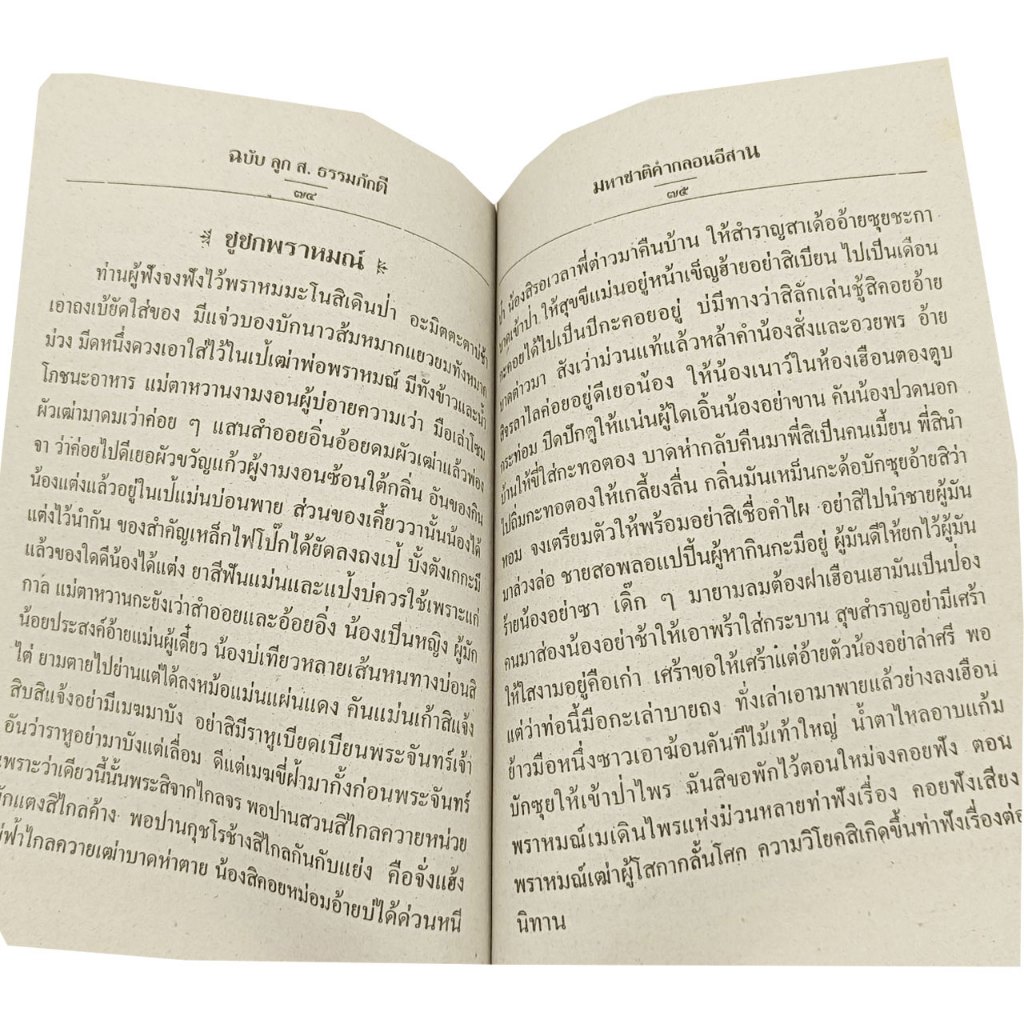 ฉบับ ลูก ส. ธรรมภักดี
๗๔
ชูชกพราหมณ์
ท่านผู้ฟังจงฟังไว้พราหมมะโนสิเดินป่า อะมิตตะตาปะจั
เอาถงเบ้ยัดใส่ของ มีแจ่วบองบักนาวส้มหมากแยวยอมทังหมาก
ม่วง มีดหนึ่งดวงเอาใส่ไว้ในเป้เฒ่าพ่อพราหมณ์ มีทั้งข้าวและน้ำ
โภชนะอาหาร แม่ตาหวานงามงอนผู้บ่อายความเว่า มือเล่าโซม
ผัวเฒ่ามาดมเว่าค่อย ๆ แสนสำออยอิ่นอ้อยดมผัวเฒ่าแล้วพ่อง
จา ว่าค่อยไปดีเยอผัวขวัญแก้วผู้งามงอนซ้อนใต้กลิ่น อันของกิน
น้องแต่งแล้วอยู่ในเป้แม่นบ่อนพาย ส่วนของเคี้ยววานั้นน้องได้
แต่งไว้นำกัน ของสำคัญเหล็กไฟโป๊กได้ยัดลงถงเป้ บั้งตังเกกะมี
แล้วของใดดีน้องได้แต่ง ยาสีฟันแม่นและแป้งบ่ควรใช้เพราะแก่
กาล แม่ตาหวานกะยังเว่าสำออยและอ้อยอิ่ง น้องเป็นหญิง ผู้มัก
น้อยประสงค์อ้ายแม่นผู้เดี๋ยว น้องบ่เทียวหลายเส้นหนทางบ่อนสิ
ไต่ ยามตายไปย่านแต่ได้ลงหม้อแม่นแผ่นแดง คันแม่นเก้าสิแจ้ง
สิบสิแจ้งอย่ามีเมฆมาบัง อย่าสิมีราหูเบียดเบียนพระจันทร์เจ้า
อันว่าราหูอย่ามาบังแต่เลื่อม ดีแต่เมฆขี้ฝ้ามากั้งก่อนพระจันทร์
เพราะว่าเดียวนี้นั้นพระสิจากไกลจร พอปานสวนสิไกลควายหน่วย
แตงสิไกลค้าง พอปานกุชโรช้างสิไกลกันกับแย่ง คือจั่งแฮ้ง
ฟ้าไกลควายเฒ่าบาดห่าตาย น้องสิคอยหม่อมอ้ายบ่ได้ด่วนหนี
มหาชาติคำกลอนอีสาน
๗๕
ป๋า น้องสิรอเวลาพี่ต่าวมาคืนบ้าน ให้สำราญสาเด้ออ้ายซุยชะกา
บาดเข้าป่า ให้สุขขีแม่นอยู่หน้าเข็ญฮ้ายอย่าสิเบียน ไปเป็นเดือน
กะคอยได้ไปเป็นปีกะคอยอยู่ บ่มีทางว่าสิลักเล่นชู้สิคอยอ้าย
บาดต่าวมา สังเว่าม่วนแท้แล้วหล้าคำน้องสั่งและอวยพร อ้าย
สิจรลาไลค่อยอยู่ดีเยอน้อง ให้น้องเนาว์ในห้องเฮือนตองตูบ
กระท่อม ปิดปักตูให้แน่นผู้ใดเอิ้นน้องอย่าขาน คันน้องปวดนอก
บ้านให้ขี่ใส่กะทอตอง บาดห่ากลับคืนมาพี่สิเป็นคนเมี้ยน พี่สินำ
ไปถิ่มกะทอตองให้เกลี้ยงลื่น กลิ่นมันเหม็นกะด้อบักซุยอ้ายสิว่า
หอม จงเตรียมตัวให้พร้อมอย่าสิเชื่อคำไผ อย่าสิไปนำชายผู้มัน
มาล่วงล่อ ชายสอพลอแปปิ้นผู้หากินกะมีอยู่ ผู้มันดีให้ยกไว้ผู้มัน
ร้ายน้องอย่าซา เดิ๊ก ๆ มายามลมต้องฝาเฮือนเฮามันเป็นป่อง
คนมาส่องน้องอย่าช้าให้เอาพร้าใส่กระบาน สุขสำราญอย่ามีเศร้า
ให้ใสงามอยู่คือเก่า เศร้าขอให้เศร้าแต่อ้ายตัวน้องอย่าล่าศรี พอ
แต่ว่าท่อนี้มือกะเล่าบายถง ทั่งเล่าเอามาพายแล้วย่างลงเฮือน
ย้าวมือหนึ่งซาวเอาฆ้อนคันทีไม้เท้าใหญ่ น้ำตาไหลอาบแก้ม
บักซุยให้เข้าป่าไพร ฉันสิขอพักไว้ตอนใหม่จงคอยฟัง ตอน
พราหมณ์เมเดินไพรแห่งม่วนหลายท่าฟังเรื่อง คอยฟังเสียง
พราหมณ์เฒ่าผู้โสกากลั้นโศก ความวิโยคสิเกิดขึ้นท่าฟังเรื่องต่อ
นิทาน